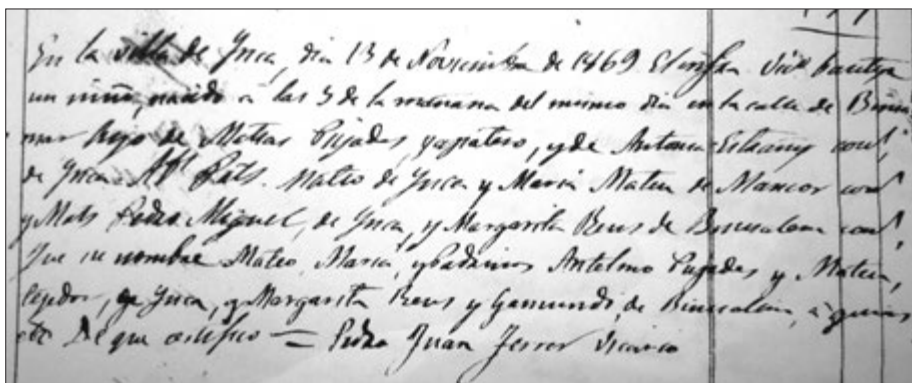 En la villa de Ynca, dia 13 de Noviembre de 1869. El infro Vic.º bautizé
un niño, nacido á las 3 de la mañana del mismo dia en la calle de
hijo de Mateo Pujadas, zapatero, y de Antonia Estrany cons.
de Ynca. Ab.s Pats. Mateo de Ynca y Maria Mateu de Mancor cons.
y Mats Pedro Miguel, de Ynca, y Margarita Beus de Binisalem cons.
Fue su nombre Mateo, Maria, y padrinos Antelmo Pujadas y Mateu,
tejedor, de Ynca, y Margarita Beus y Gamundi, de Binisalem, á quienes
etc. De que certifico = Pedro Juan Ferrer Vicario